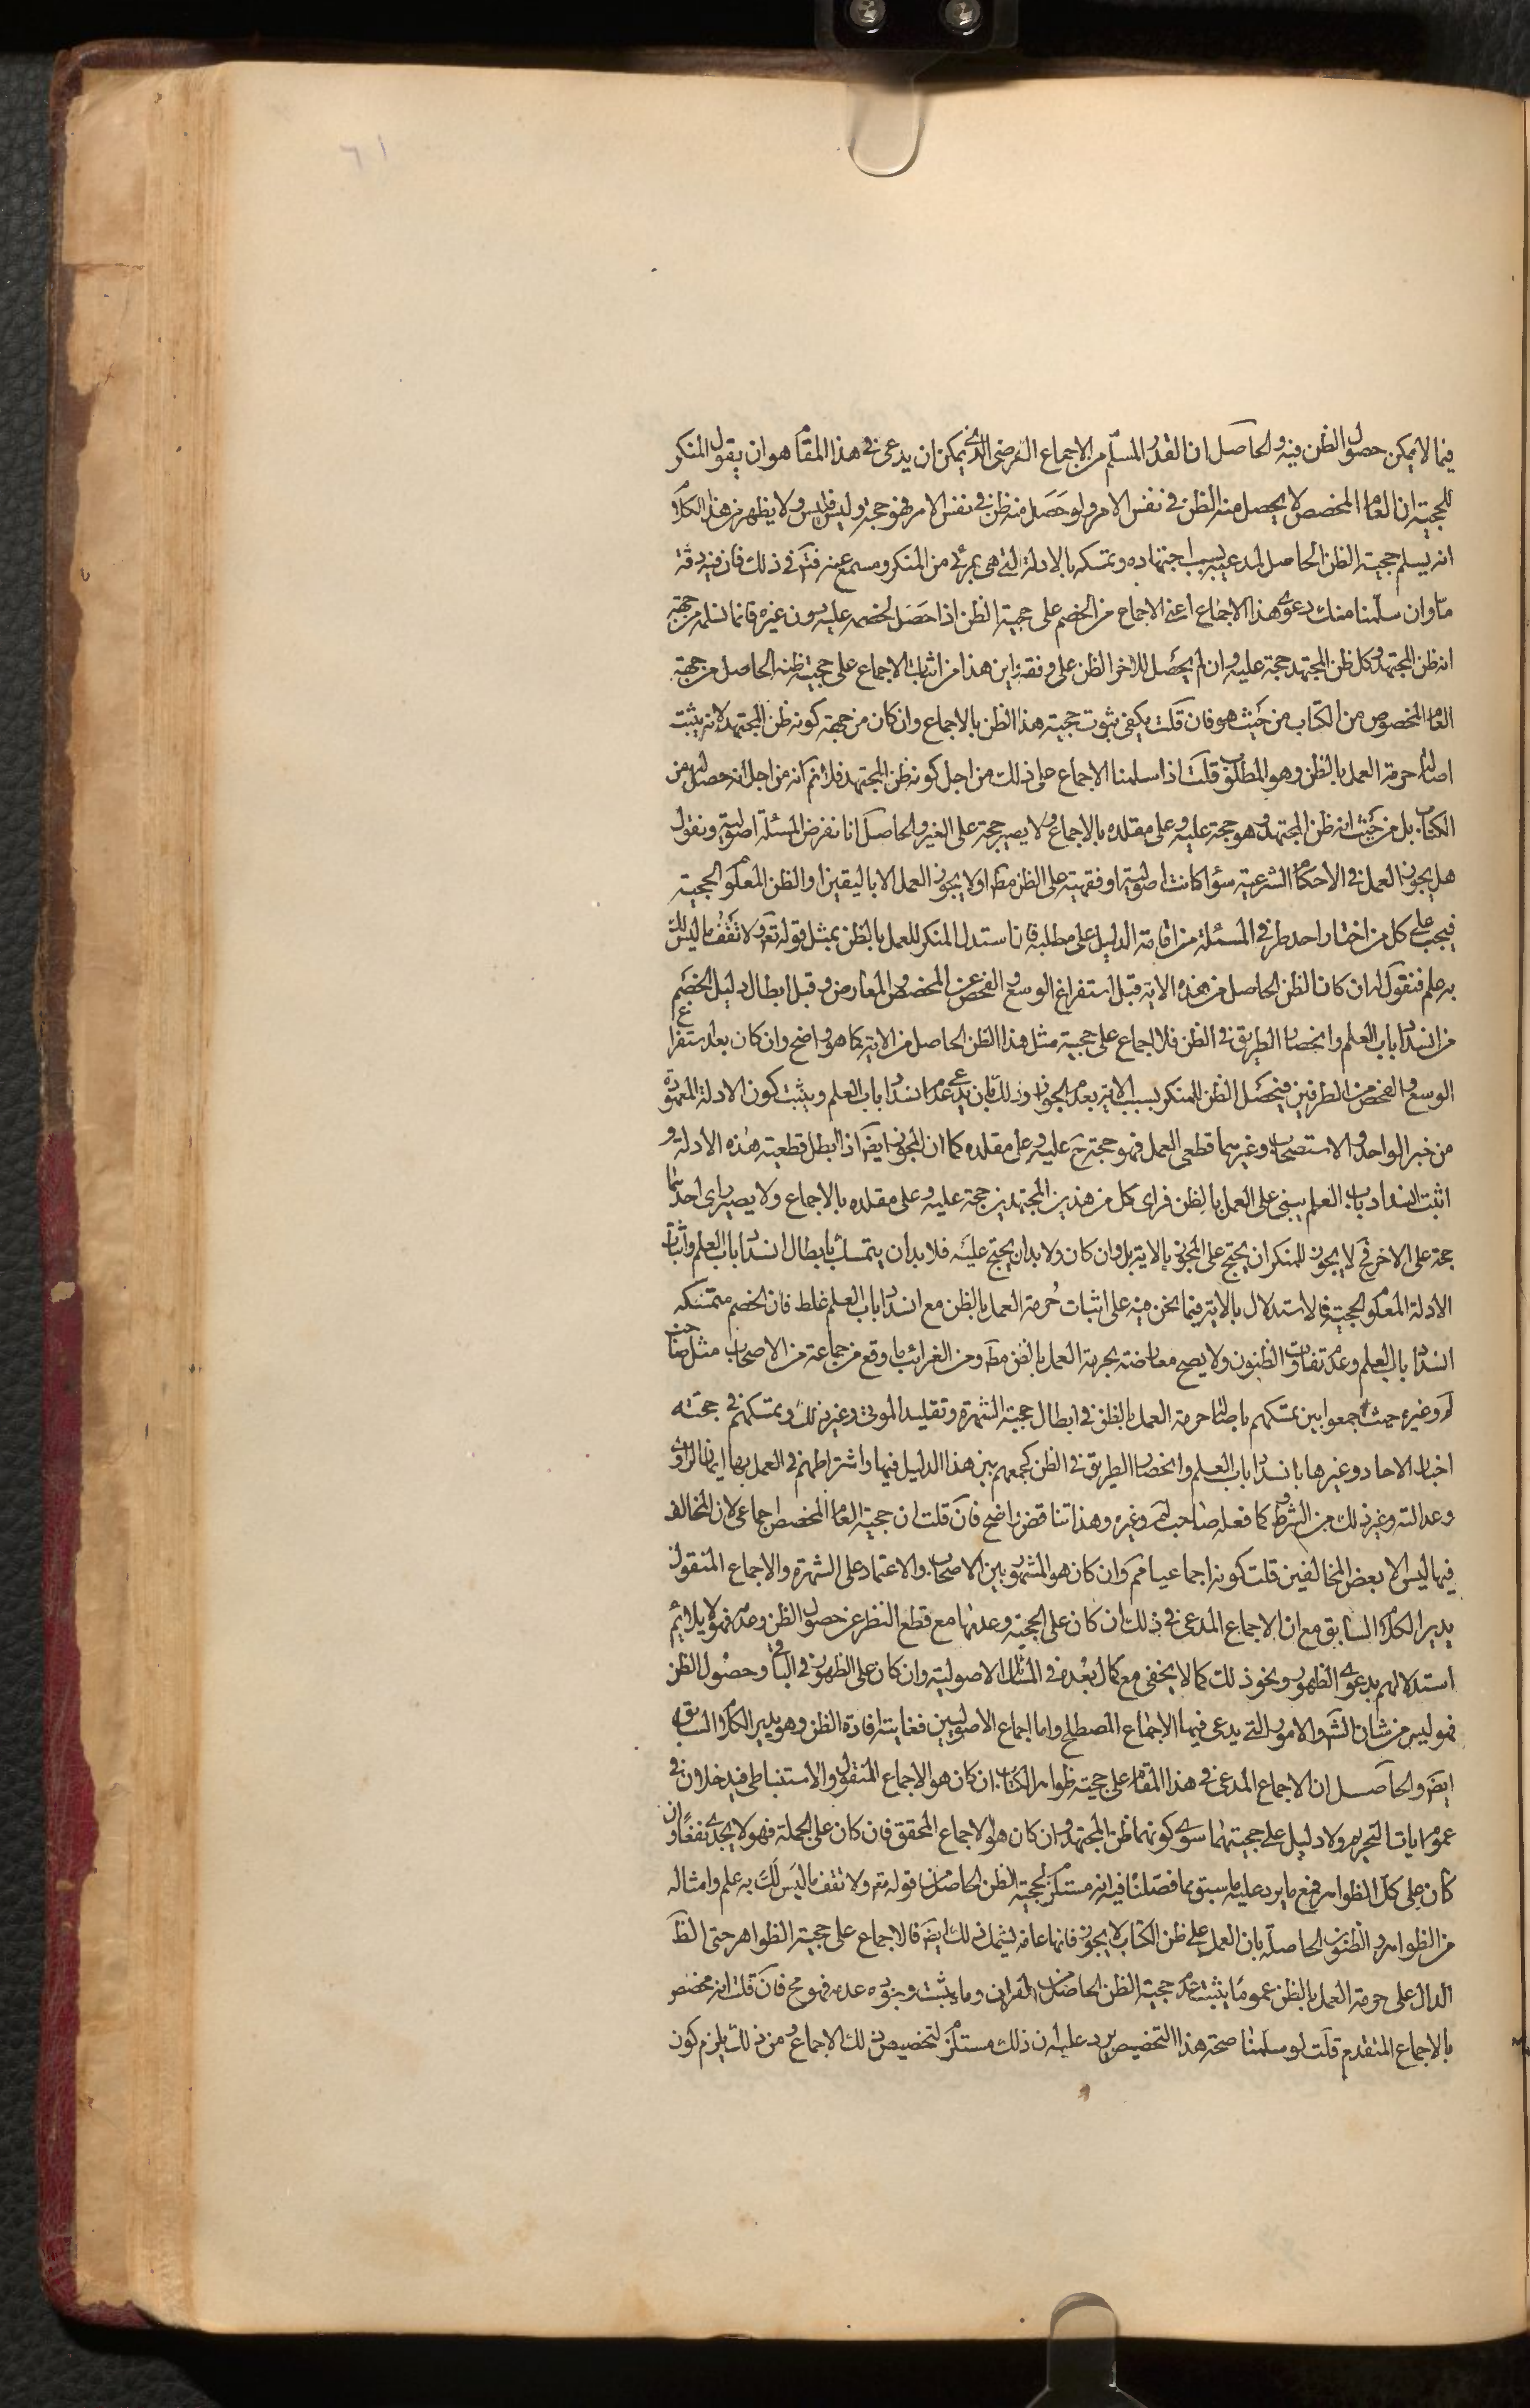 ٦١
فيما لا يمكن حصول الظن فيه والحاصل ان القدر المسلم من الاجماع الفرضي الذي يمكن ان يدعى في هذا المقام هو ان يقول المنكر
للحجية ان العام المخصص لا يحصل منه الظن في نفس الامر ولو حصل منه ظن في نفس الامر فهو حجة وليس فليس ولا يظهر من هذا الكلام
انه يسلم حجية الظن الحاصل لمدعيه بسبب اجتهاده وتمسكه بالادلة التي هي بمرئى من المنكر ومسمع عنه فتم في ذلك فان فيه دقة
ما وان سلمنا منك دعوى هذا الاجماع اعني الاجماع من الخصم على حجية الظن اذا حصل لخصمه عليه دون غيره فانما نسلمه من جهة
انه ظن المجتهد وكل ظن المجتهد حجة عليه وان لم يحصل للاخر الظن على وفقه واين هذا من اثبات الاجماع على حجية ظنه الحاصل من جهة
العام المخصوص من الكتاب من حيث هو فان قلت يكفي ثبوت حجية هذا الظن بالاجماع وان كان من جهة كونه ظن المجتهد لانه يثبت
اصالة حرمة العمل بالظن وهو المطلوب قلت اذا سلمنا الاجماع على ذلك من اجل كونه ظن المجتهد فلا نم انه من اجل انه حصل له من
الكتاب بل من حيث انه ظن المجتهد وهو حجة عليه وعلى مقلده بالاجماع ولا يصير حجة على الغير والحاصل انا نفرض المسئلة اصولية ونقول
هل يجوز العمل في الاحكام الشرعية سواء كانت اصولية او فقهية على الظن مط او لا يجوز العمل الا باليقين او الظن المعلوم الحجية
فيجب على كل من اختار احد طرفي المسئلة من اقامة الدليل على مطلبه فان استدل المنكر للعمل بالظن بمثل قوله تعم ولا تقف ما ليس لك
به علم فنقول له ان كان الظن الحاصل من هذه الاية قبل استفراغ الوسع والفحص عن المخصص والمعارض وقبل ابطال دليل الخصم
من انسداد باب العلم وانحصار الطريق في الظن فلا اجماع على حجية مثل هذا الظن الحاصل من الاية كما هو واضح وان كان بعد استفراغ
الوسع والفحص من الطرفين فيحصل الظن للمنكر بسبب الاية بعدم الجواز وذلك بان يدعي عدم انسداد باب العلم ويثبت كون الادلة المعهودة
من خبر الواحد والاستصحاب وغيرهما قطعي العمل فهو حجة ح عليه وعلى مقلده كما ان المجوز ايضا اذا ابطل قطعية هذه الادلة و
اثبت انسداد باب العلم يبني على العمل بالظن فراي كل من هذين المجتهدين حجة عليه وعلى مقلده بالاجماع ولا يصير راي احدهما
حجة على الاخر فح لا يجوز للمنكر ان يحتج على المجوز بالاية بل وان كان ولا بد ان يحتج عليه فلا بد ان يتمسك بابطال انسداد باب العلم واثبات
الادلة المعلوم الحجية فالاستدلال بالاية فيما نحن فيه على اثبات حرمة العمل بالظن مع انسداد باب العلم غلط فان الخصم متمسكه
انسداد باب العلم وعدم تفاوت الظنون ولا يصح معارضته بحرمة العمل بالظن مط ومن الغرائب ما وقع من جماعة من الاصحاب مثل صاحب
لم وغيره حيث جمعوا بين تمسكهم باصالة حرمة العمل بالظن في ابطال حجية الشهرة وتقليد الموتى وغير ذلك وتمسكهم في حجية
اخبار الاحاد وغيرها بانسداد باب العلم وانحصار الطريق في الظن كجمعهم بين هذا الدليل فيها واشتراطهم في العمل بها ايمان الراوي
وعدالته وغير ذلك من الشروط كما فعله صاحب لم وغيره وهذا تناقض واضح فان قلت ان حجية العام المخصص اجماعي لان المخالف
فيها ليس الا بعض المخالفين قلت كونه اجماعيا مم وان كان هو المشهور بين الاصحاب والاعتماد على الشهرة والاجماع المنقول
يدير الكلام السابق مع ان الاجماع المدعى في ذلك ان كان على الحجية وعدمها مع قطع النظر عن حصول الظن وعدمه فهو لا يلايم
استدلالهم بدعوى الظهور ونحو ذلك كما لا يخفى مع كمال بعده في المسائل الاصولية وان كان على الظهور في الباقي وحصول الظن
فهو ليس من شان الشرع والامور التي يدعى فيها الاجماع المصطلح واما اجماع الاصوليين فغايته افادة الظن وهو يدير الكلام السابق
ايضا والحاصل ان الاجماع المدعى في هذا المقام على حجية ظواهر الكتاب ان كان هو الاجماع المنقول والاستنباطي فيدخلان في
عموم ايات التحريم ولا دليل على حجيتهما سوى كونهما ظن المجتهد وان كان هو الاجماع المحقق فان كان على الجملة فهو لا يجدي نفعا وان
كان على كل الظواهر فمع ما يرد عليه ما سبق مما فصلنا فيه انه مستلزم لحجية الظن الحاصل من قوله تعم ولا تقف ما ليس لك به علم وامثاله
من الظواهر والظنون الحاصلة بان العمل على ظن الكتاب لا يجوز فانها عامة يشمل ذلك ايضا فالاجماع على حجية الظواهر حتى الظ
الدال على حرمة العمل بالظن عموما يثبت عدم حجية الظن الحاصل من القرآن وما يثبت وجوده عدمه فهو مح فان قلت انه مخصص
بالاجماع المتقدم قلت لو سلمنا صحة هذا التخصيص يرد عليه ان ذلك مستلزم لتخصيص ذلك الاجماع ومن ذلك يلزم كون